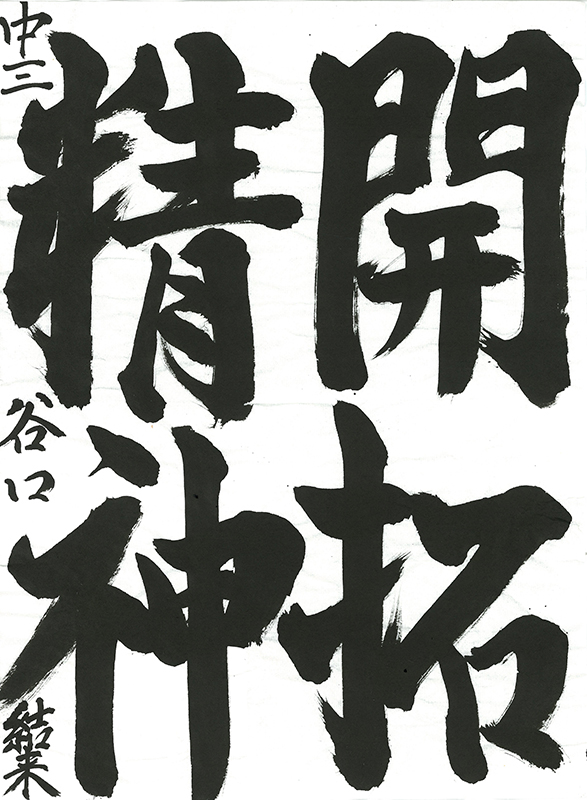 開拓
精神
中三 谷口 結来